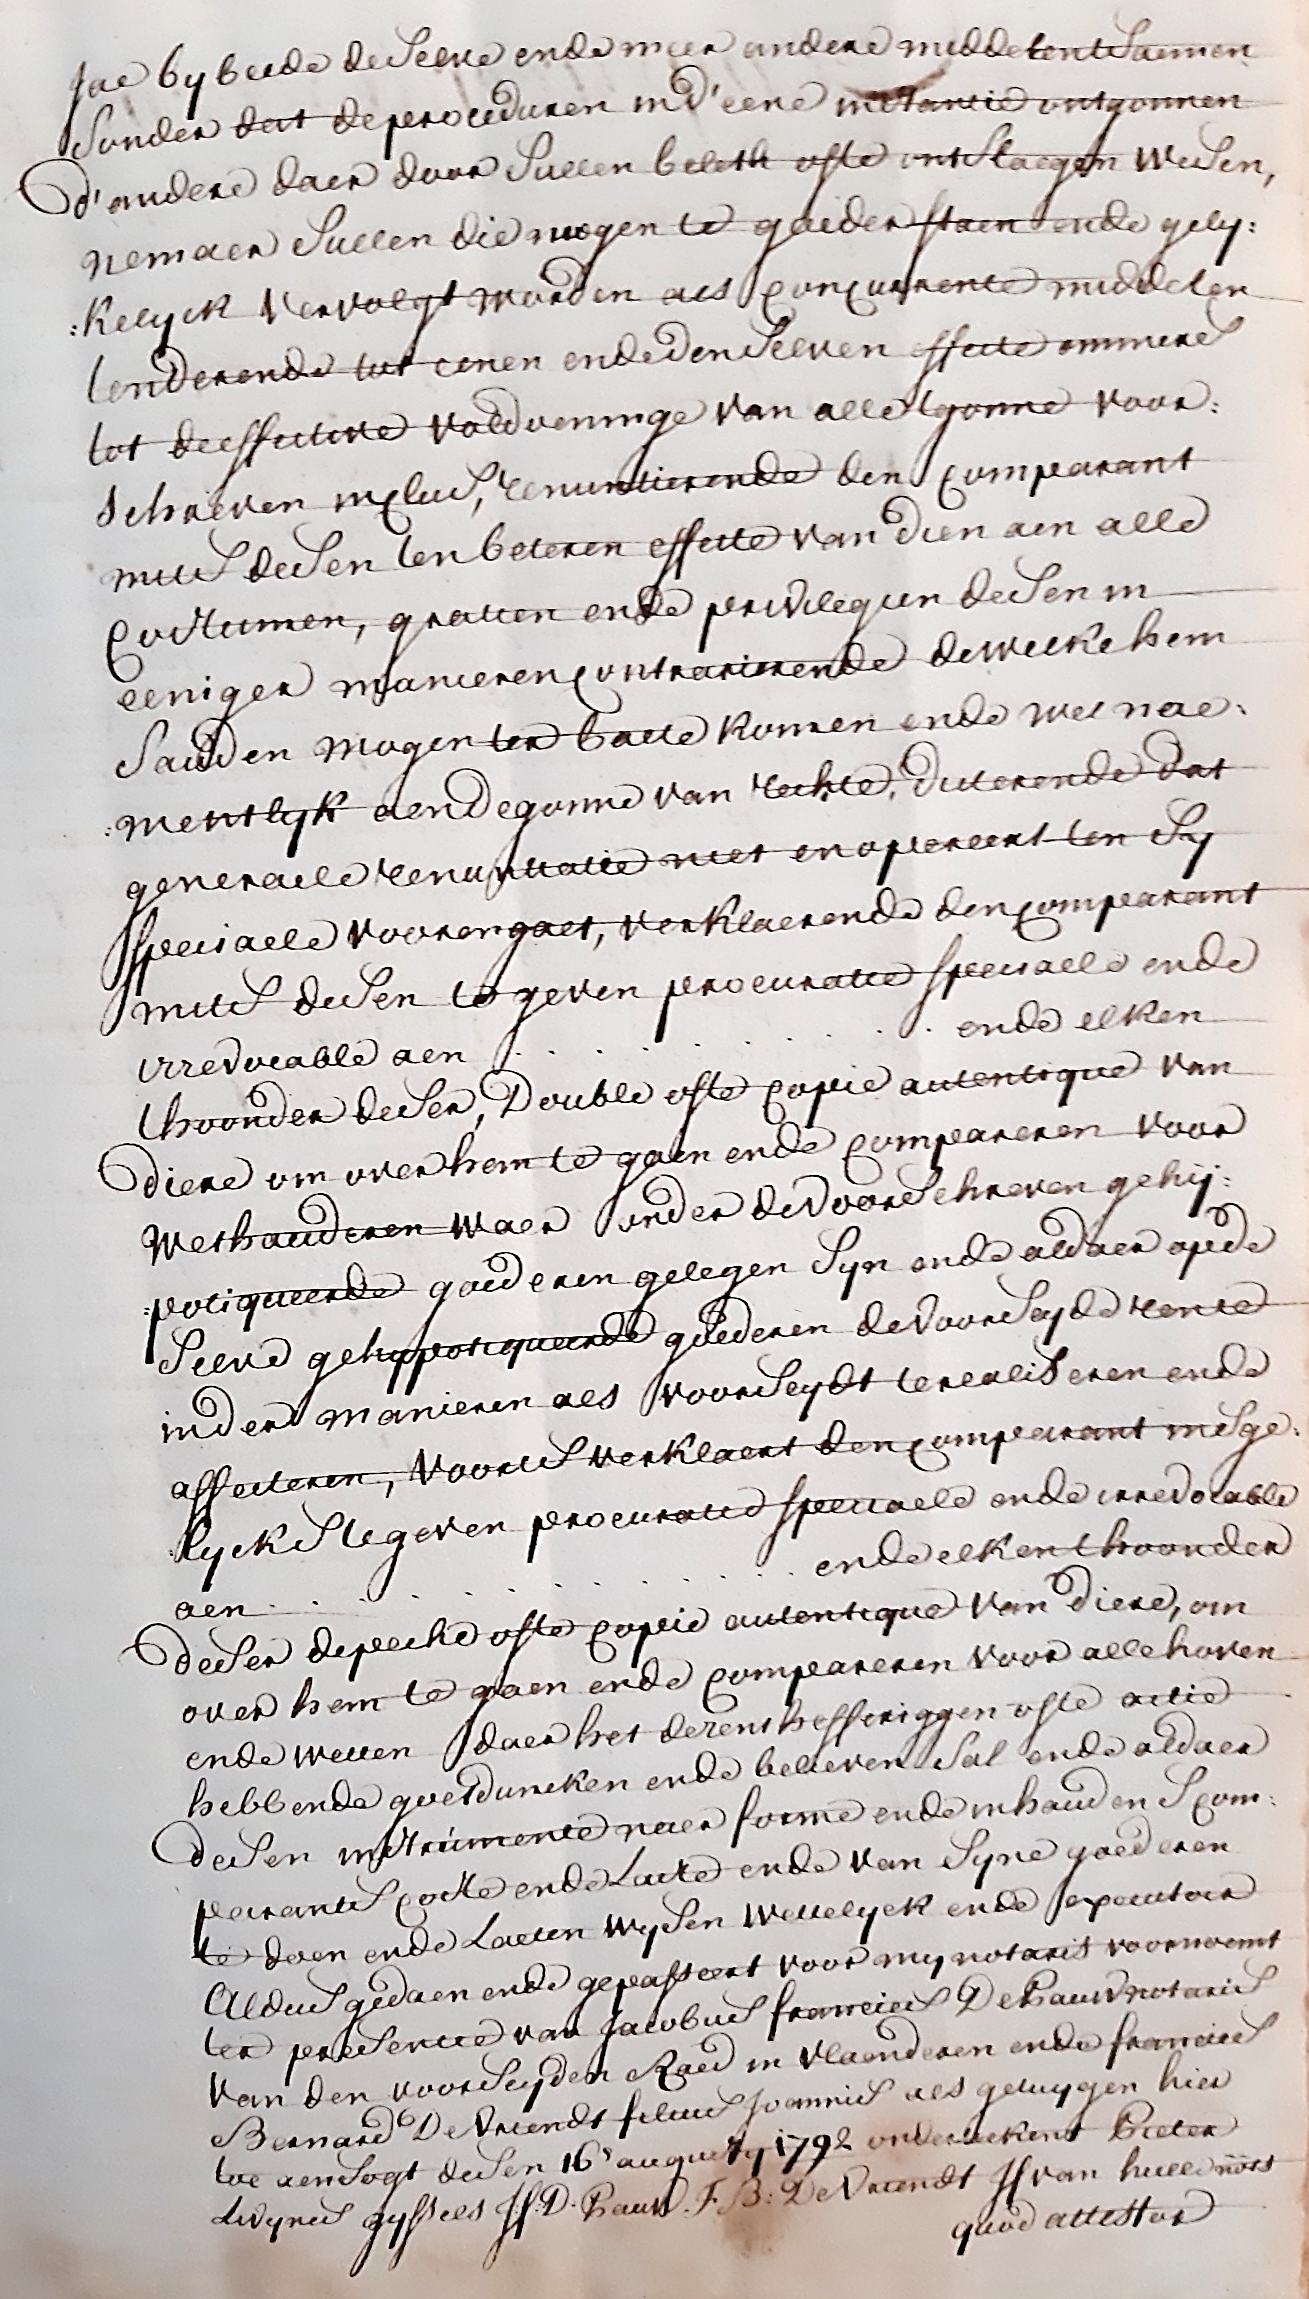 Jae by beede de selve ende meer andere middelen tsaemen
sonder dat de proceduren in d'eene instantie ontgonnen
d'andere daer door sullen beleth ofte ontslaegen wesen,
nemaer sullen die mogen te gaeder staen ende gely:
:kelyck vervolgt worden als concurrente middelen
tenderende tot eenen ende den selven effecte emmers
tot de effective voldoeninge van alle tgonne voor:
schreven inclus, renuntierende den comparant
mits desen ten beteren effecte van dien aen alle
costumen, gratien ende privilegien desen in
eeniger manieren contrarierende de welcke hem
sauden mogen ter baete komen ende wel nae:
:mentlyk aen degonne van rechte, dicterende dat
generaele renuntiatie niet en opereert ten sy
speciaele vooren gaet, verklaerende den comparant
mits desen te geven procuratie speciaele ende
irrevocable aen . . . . . . . . . . ende elken
thoonder deser, Double ofte copie autentique van
diere om over hem te gaen ende compareren voor
wethauderen waer onder de voorschreven gehij:
:potiqueerde goederen gelegen syn ende aldaer op de
selve gehyppotiqueerde goederen de voorseyde rente
in der manieren als voorseydt te realiseren ende
affecteren, voorts verklaert den comparant insge:
:lyckx te geven procuratie speciaele ende irrevocable
aen . . . . . . . . . . . . . ende elken thoonder
deser depeche ofte copie autentique van diere, om
over hem te gaen ende compareren voor alle hoven
ende wetten daer het de renthefferiggen ofte actie
hebbende goetduncken ende believen sal ende aldaer
desen instrumente naer forme ende inhauden s'com:
parants coste ende laste ende van syne goederen
te doen ende laeten wysen wettelyck ende executoir
Aldus gedaen ende gepasseert voor my notaris voornoemt
ter presentie van Jacobus francies De Pauw notaris
van den voorseyden Raed in Vlaenderen ende francies
Bernard De Vriendt filius Joannis als getuygen hier
toe aensogt desen 16s augusty 1792 onderteekent Pieter
Livynus gyssels Jf: D: Pauw. F: B: De Vriendt Jf van hulle nots
quod attestor